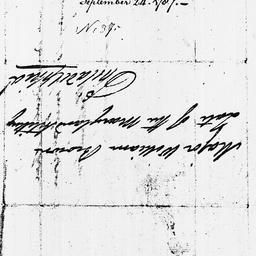 September 24. 1787.—
No. 37.
Major William Brown
Late of the Maryland Artillery
Philadelphia